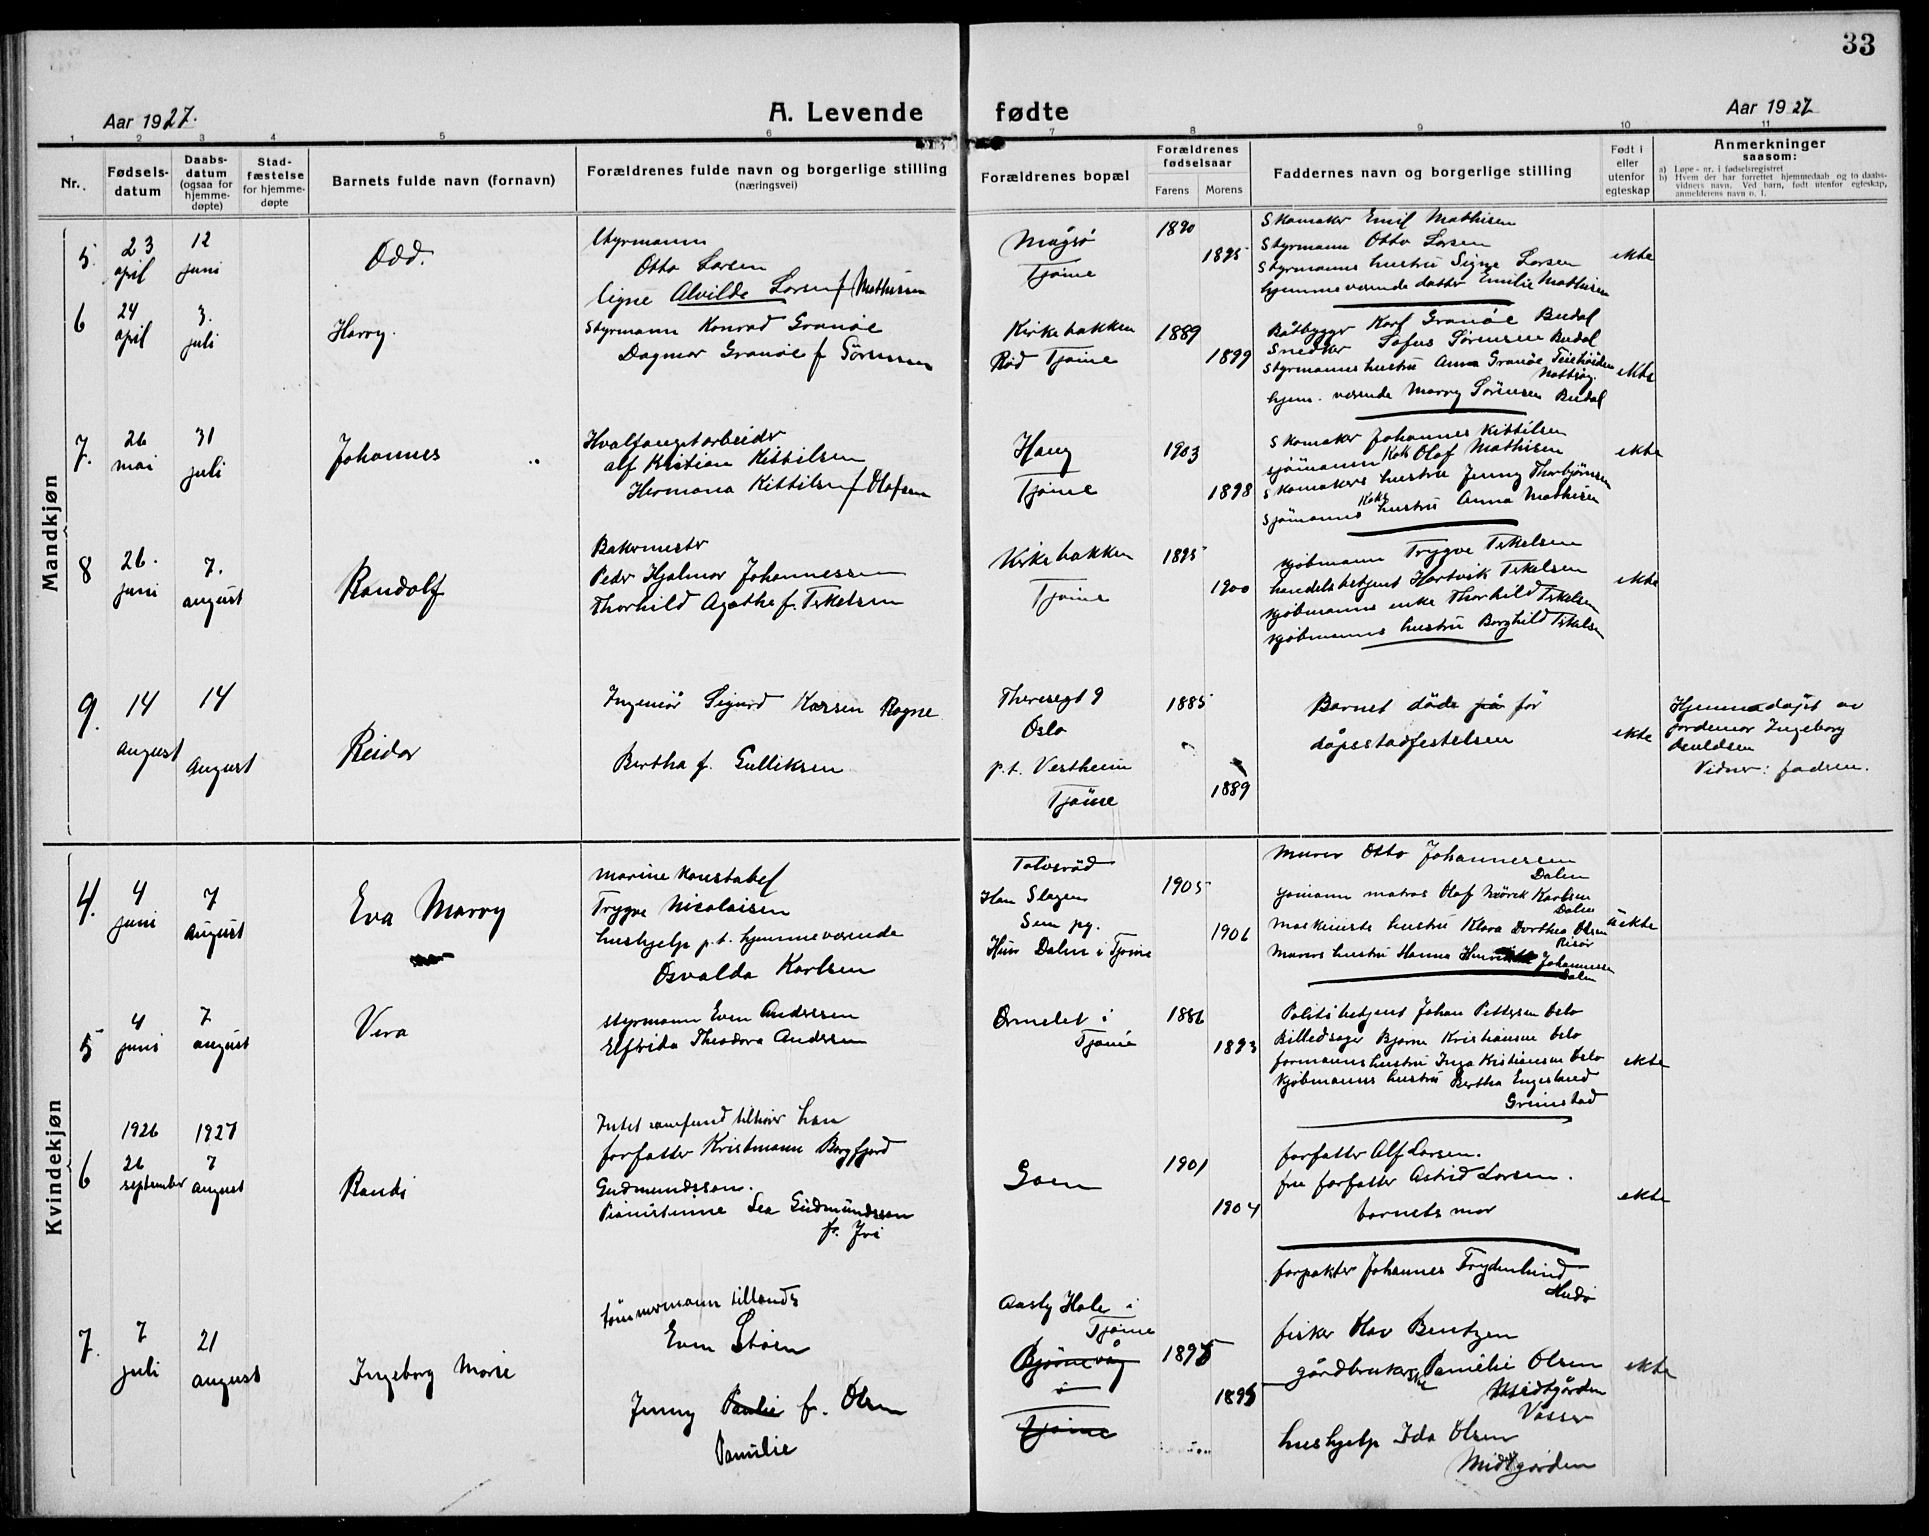 33
Aar 1927.
A. Levende fødte
Aar 1927
1 2 3 4 5 6 7 8 9 10 11
Nr.
Fødsels-
datum
Daabs-
datum
(ogsaa for
hjemme-
døpte)
Stad-
fæstelse
for hjemme-
døpte
Barnets fulde navn (fornavn)
Forældrenes fulde navn og borgerlige stilling
(næringsvei)
Forældrenes bopæl
Forældrenes
fødselsaar
Farens Morens
Faddernes navn og borgerlige stilling
Født i
eller
utenfor
egteskap
Anmerkninger
saasom:
a) Løpe-nr. i fødselsregistret
b) Hvem der har forrettet hjemmedaab og to daabs-
vidners navn. Ved barn, født utenfor egteskap,
anmelderens navn o. l.
Mandkjøn
5. 23 april 12 juni
Odd.
Styrmann
Otto Larsen
Signe Alvilde Larsen f. Mathisen
Magsö
Tjöme
1890
1895
Skomaker Emil Mathisen
Styrmann Otto Larsen
Styrmanns hustru Signe Larsen
hjemmeværende datter Emilie Mathisen
ekte
6 24 april 3. juli
Harry.
Styrmann Konrad Granöe
Dagmar Granöe f Sörensen
Kirkebakken
Röd Tjöme
1889
1899
Båtbygger Karl Granöe Budal
Snedker Sofus Sörensen Budal
Styrmanns hustru Anna Granöe
Nøtterøy
hjem. værende Marry Sörensen Budal
ekte
7. 26 mai 31 juli
Johannes
Hvalfangstarbeider
Alf Kristian Kittilsen
Hermana Kittilsen f. Olafsen
Haug
Tjöme
1903
1898
Skomaker Johannes Kittilsen
sjömann Kok Olaf Mathisen
Skomakers hustru Jenny Thorbjörnsen
Sjömanns Koks hustru Anna Mathisen
ekte
8 26. juni 7. august
Randolf
Bakermester
Peder Hjalmar Johannessen
Thorhild Agathe f. Tekelsen
Kirkebakken
Tjöme
1895
1900
Kjöbmann Trygve Tekelsen
handelsbetjent Hartvik Tekelsen
Kjöbmanns enke Thorhild Tekelsen
Kjöbmanns hustru Borghild Tekelsen
ekte
9. 14 august 14 august
Reidar
Ingeniör Sigurd Karsin Rogne
Bertha f. Gulliksen
Theresegt 9
Oslo
p.t. Vestheim
Tjöme
1885
1889
Barnet döde på för
dåpsstadfestelsen
ekte
Hjemmedöpt av
jordemor Ingeborg
Vidner: faderen.
Kvindekjøn
4. 4 juni 7 august
Eva Marry
Marine konstabel
Trygve Nicolaisen
hushjelp p.t. hjemmeværende
Osvalda Karlsen
Tolvsröd
Han Slagen
Sem pg.
Hun Dalen i Tjöme
1905
1906
Murer Otto Johannessen
Dalen
matros Olaf Karlsen
Dalen
Maskinists hustru Klara Dorthea Olsen
Risör
Murers hustru Hanna Johannessen
Dalen
uekte
5 4 juni 7 august
Vera
Styrmann Even Andersen
Elfrida Theodora Andersen
Ormelet i
Tjöme
1886
1893
Politibetjent Johan Pettersen Oslo
Bjarne Kristiansen Oslo
formanns hustru Inga Kristiansen Oslo
Kjöbmanns hustru Bertha Engesland
Grimstad
ekte
1926 1927
6 26 september 7 august
Randi
Intet samfund tilhörer han
forfatter Kristmann Borgfjord
Gudmundsson.
Pianistinne Lea Gudmundsson
f. Ivi
Goen
1901
1904
forfatter Alf Larsen.
frue forfatter Astrid Larsen.
barnets mor
ekte
7. 7 juli 21 august
Ingeborg Marie
tömmermann tillands
Even Stöen
Jenny Paulie f. Olsen
Pamilie
Aasly Holer i
Tjöme
Bjørnevåg
i
Tjöme
1895
1895
forpakter Johannes Frydenlund
Hudö
fisker Olav Bentzen
gårdbrukerske Pamilie Olsen
Midtgården
hushjelp Ida Olsen
Midtgården
ekte